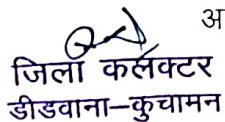 अ
जिला कलक्टर
डीडवाना–कुचामन